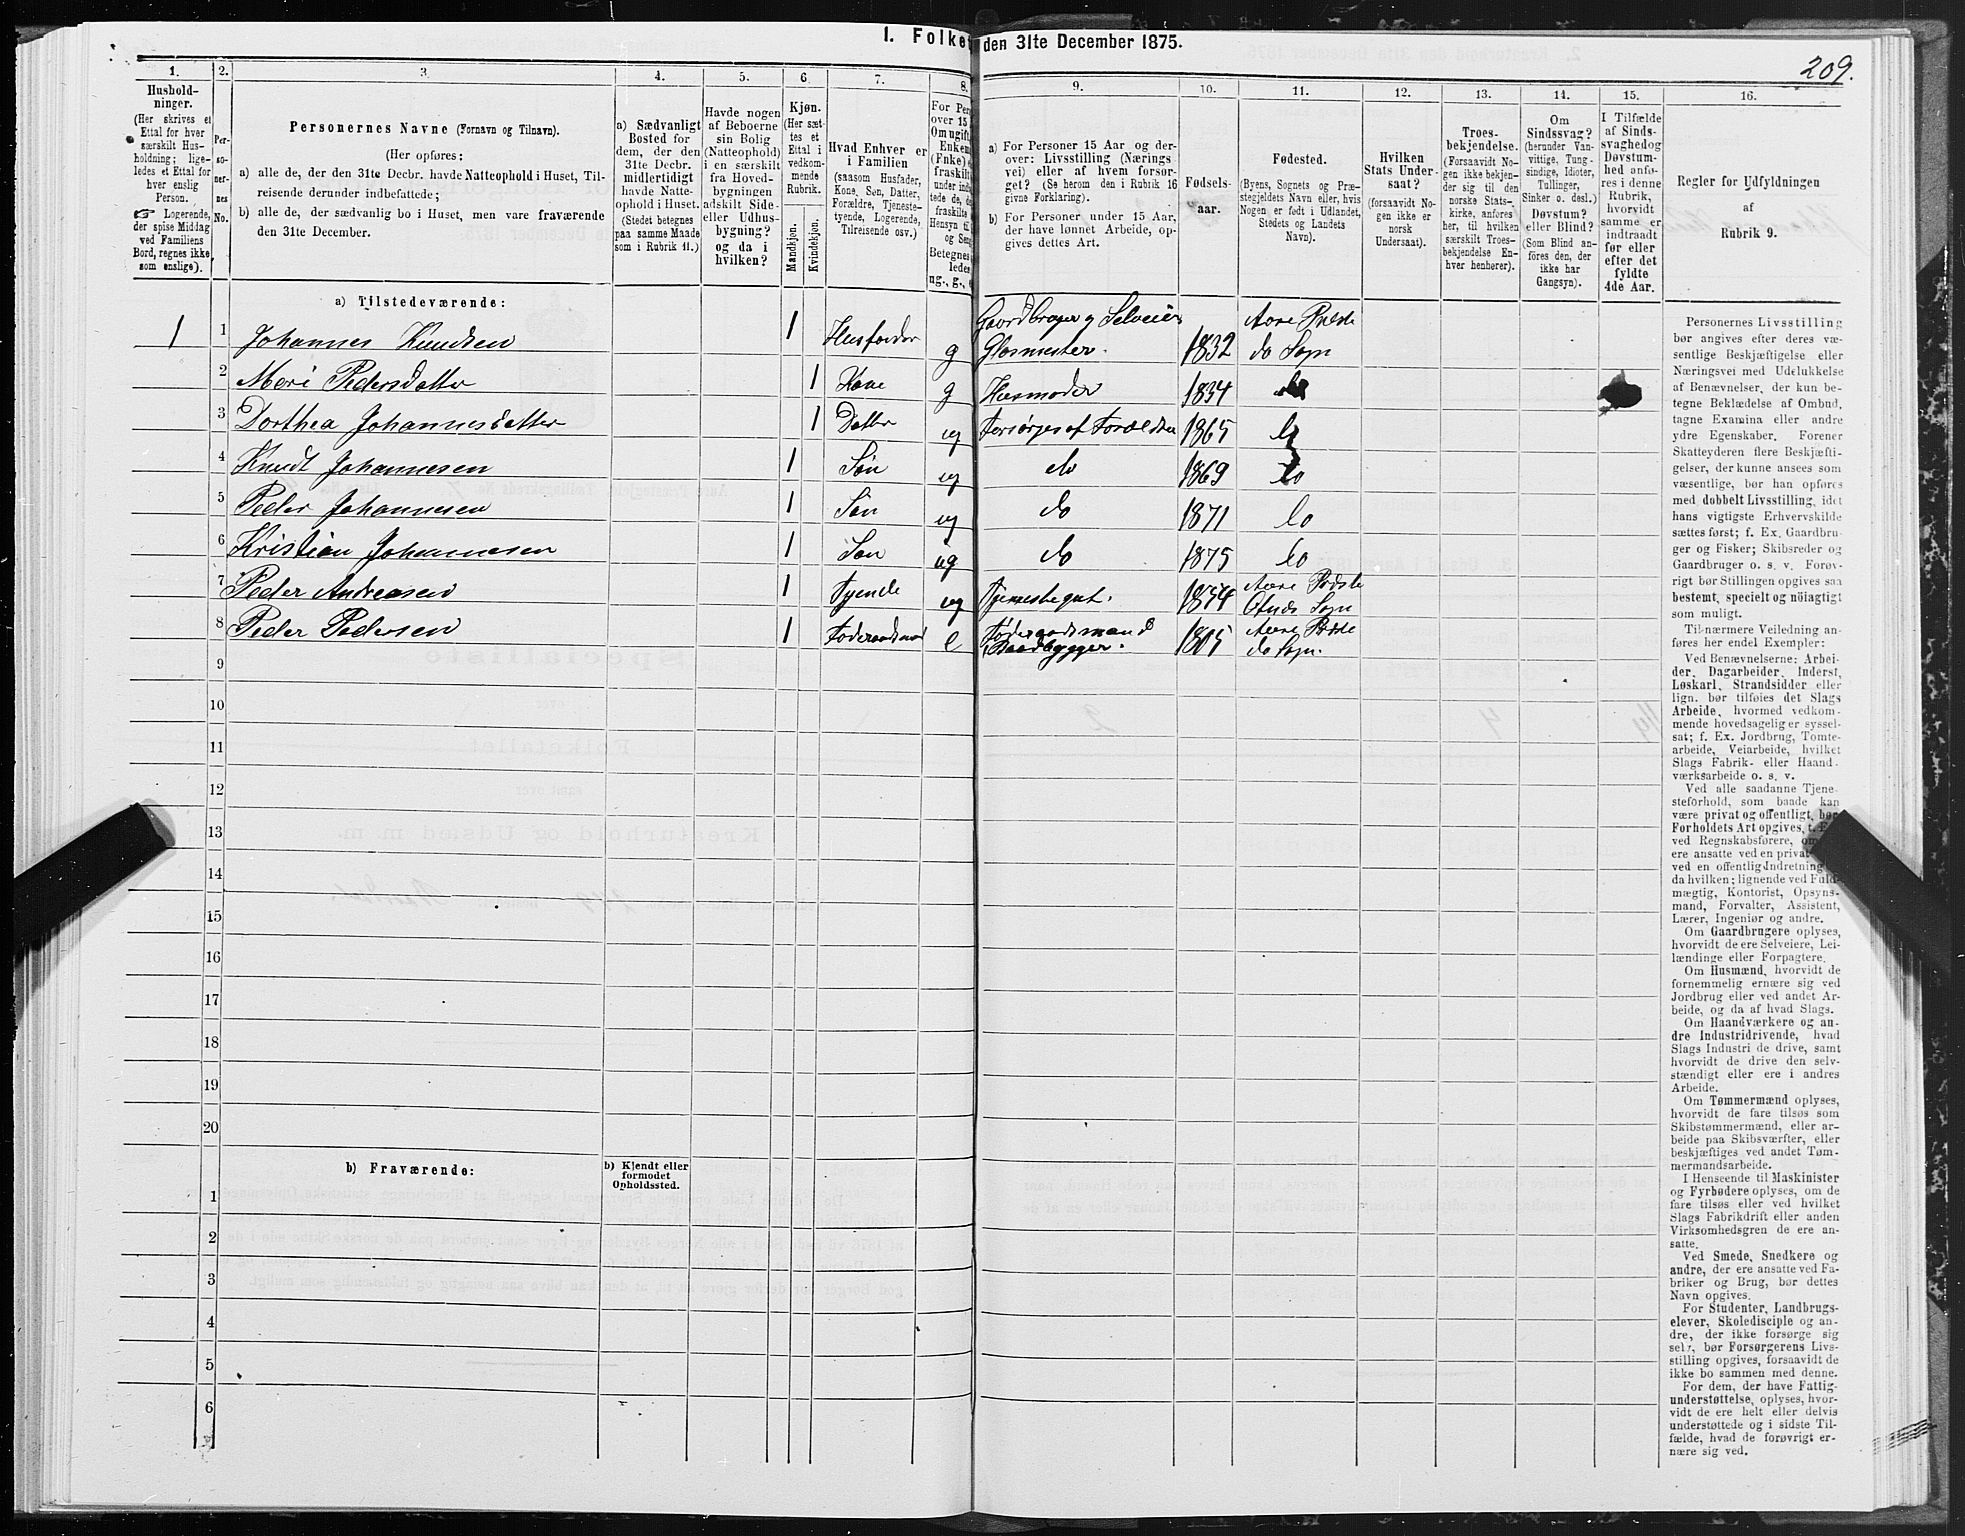 1. Folket
den 31te December 1875.
209.
1.
2.
3.
4.
5.
6.
7.
8.
9.
10.
11.
12.
13.
14.
15.
16.
Hushold-
ninger.
(Her skrives et
Ettal for hver
særskilt Hus-
holdning; lige-
ledes et Ettal for
hver enslig
Person.
☞ Logerende,
der spise Middag
ved Familiens
Bord, regnes ikke
som enslige).
Per-
so-
ner-
nes
No.
Personernes Navne (Fornavn og Tilnavn).
(Her opføres:
a) alle de, der den 31te Decbr. havde Natteophold i Huset, Til-
reisende derunder indbefattede;
b) alle de, der sædvanlig bo i Huset, men vare fraværende
den 31te December.
a) Sædvanligt
Bosted for
dem, der den
31te Decbr.
midlertidigt
havde Natte-
ophold i Huset.
(Stedet betegnes
paa samme Maade
som i Rubrik 11.)
Havde nogen
af Beboerne
sin Bolig
(Natteophold)
i en særskilt
fra Hoved-
bygningen
adskilt Side-
eller Udhus-
bygning?
og da i
hvilken?
Kjøn.
(Her sæt-
tes et
Ettal i
vedkom-
mende
Rubrik.
Mandkjøn.
Kvindekjøn.
Hvad Enhver er
i Familien
(saasom Husfader,
Kone, Søn, Datter,
Forældre, Tjeneste-
tyende, Logerende,
Tilreisende osv.)
For Per
over 15
Om ugift
Enkem
(Fnke)
fraskilt
under ind
tede de,
fraskilte
Hensyn til
og Sen
Betegnes
ledes
ug., g., e
a) For Personer 15 Aar og der-
over: Livsstilling (Nærings
vei) eller af hvem forsør-
get? (Se herom den i Rubrik 16
givne Forklaring).
b) For Personer under 15 Aar,
der have lønnet Arbeide, op-
gives dettes Art.
Fødsels-
aar.
Fødested.
(Byens, Sognets og Præ-
stegjeldets Navn eller, hvis
Nogen er født i Udlandet,
Stedets og Landets
Navn).
Hvilken
Stats Under-
saat?
(forsaavidt No-
gen ikke er
norsk
Undersaat).
Troes-
bekjendelse.
(Forsaavidt No-
gen ikke bekjen-
der sig til den
norske Stats-
kirke, anføres
her, til hvilken
særskilt Troes-
bekjendelse En-
hver henhører).
Om
Sindssvag?
(herunder Van-
vittige, Tung-
sindige, Idioter,
Tullinger,
Sinker o. desl.)
Døvstum?
eller Blind?
(Som Blind an-
føres den, der
ikke har
Gangsyn).
I Tilfælde
af Sinds-
svaghed og
Døvstum-
hed anfø-
res i denne
Rubrik,
hvorvidt
samme er
indtraadt
før eller
efter det
fyldte
4de Aar.
Regler for Udfyldningen
af
Rubrik 9.
a) Tilstedeværende:
Gaardbruger og Selveier Aore Præste
1 1 Johannes Knudsen 1 Husfader g Glasmester. 1832 do Sogn
2 Mari Pedersdatter 1 Kone g Husmoder 1834 do
3 Dorthea Johannesdatter 1 Datter ug Forsørges af Forældrene 1865 do
4 Knudt Johannesen 1 Søn ug do 1869 do
5 Peder Johannesen 1 Søn ug do 1871 do
6 Kristian Johannesen 1 Søn ug do 1875 do
7 Peder Andreasen 1 Tyende ug Tjenestegut. 1854 Aore Præste
Sogn
8 Peder Pedersen 1 Føderaadsmand e Føderaadsmand 1805 Aore Præste
Baadbygger. do Sogn.
9
10
11
12
13
14
15
16
17
18
19
20
b) Fraværende:
b) Kjendt eller
formodet
Opholdssted.
1
2
3
4
5
6
Personernes Livsstilling
bør angives efter deres væ-
sentlige Beskjæftigelse eller
Næringsvei med Udelukkelse
af Benævnelser, der kun be-
tegne Beklædelse af Ombud,
tagne Examina eller andre
ydre Egenskaber. Forener
Skatteyderen flere Beskjæfti-
gelser, der kunne ansees som
væsentlige, bør han opføres
med dobbelt Livsstilling, idet
hans vigtigste Erhvervskilde
sættes først; f. Ex. Gaardbru-
ger og Fisker; Skibsreder og
Gaardbruger o. s. v. Forøv-
rigt bør Stillingen opgives saa
bestemt, specielt og nöiagtigt
som muligt.
Til nærmere Veiledning an-
føres her endel Exempler:
Ved Benævnelserne: Arbei-
der, Dagarbeider, Inderst,
Løskarl, Strandsidder eller
lign. bør tilføies det Slags
Arbeide, hvormed vedkom-
mende hovedsagelig er syssel-
sat; f. Ex. Jordbrug, Tomte-
arbeide, Veiarbeide, hvilket
Slags Fabrik- eller Haand-
værksarbeide o. s. v.
Ved alle saadanne Tjene-
steforhold, som baade kan
være privat og offentligt, bør
Forholdets Art opgives, t. E
ved Regnskabsførere, om
ere ansatte ved en privat
ved en offentlig Indretning
da hvilken; lignende ved Fuld-
mægtig, Kontorist, Opsyns-
mand, Forvalter, Assistent,
Lærer, Ingeniør og andre.
Om Gaardbrugere oplyses,
hvorvidt de ere Selveiere, Lei-
lændinge eller Forpagtere.
Om Husmænd, hvorvidt de
fornemmelig ernære sig ved
Jordbrug eller ved andet Ar-
beide, og da af hvad Slags.
Om Haandværkere og an-
dre Industridrivende, hvad
Slags Industri de drive, samt
hvorvidt de drive den selv-
stændigt eller ere i andres
Arbeide.
Om Tømmermænd oplyses,
hvorvidt de fare tilsøs som
Skibstømmermænd, eller ar-
beide paa Skibsværfter, eller
beskjæftiges ved andet Tøm-
mermandsarbeide.
I Henseende til Maskinister
og Fyrbødere oplyses, om de
fare tilsøs eller ved hvilket
Slags Fabrikdrift eller anden
Virksomhedsgren de ere an-
satte.
Ved Smede, Snedkere og
andre, der ere ansatte ved Fa-
briker og Brug, bør dettes
Navn opgives.
For Studenter, Landbrugs-
elever, Skoledisciple og an-
dre, der ikke forsørge sig
selv, bør Forsørgerens Livs-
stilling opgives, forsaavidt de
ikke bo sammen med denne.
For dem, der have Fattig-
understøttelse, oplyses, hvor-
vidt de ere helt eller delvis
understøttede og i sidste Til-
fælde, hvad de forøvrigt er-
nære sig ved.